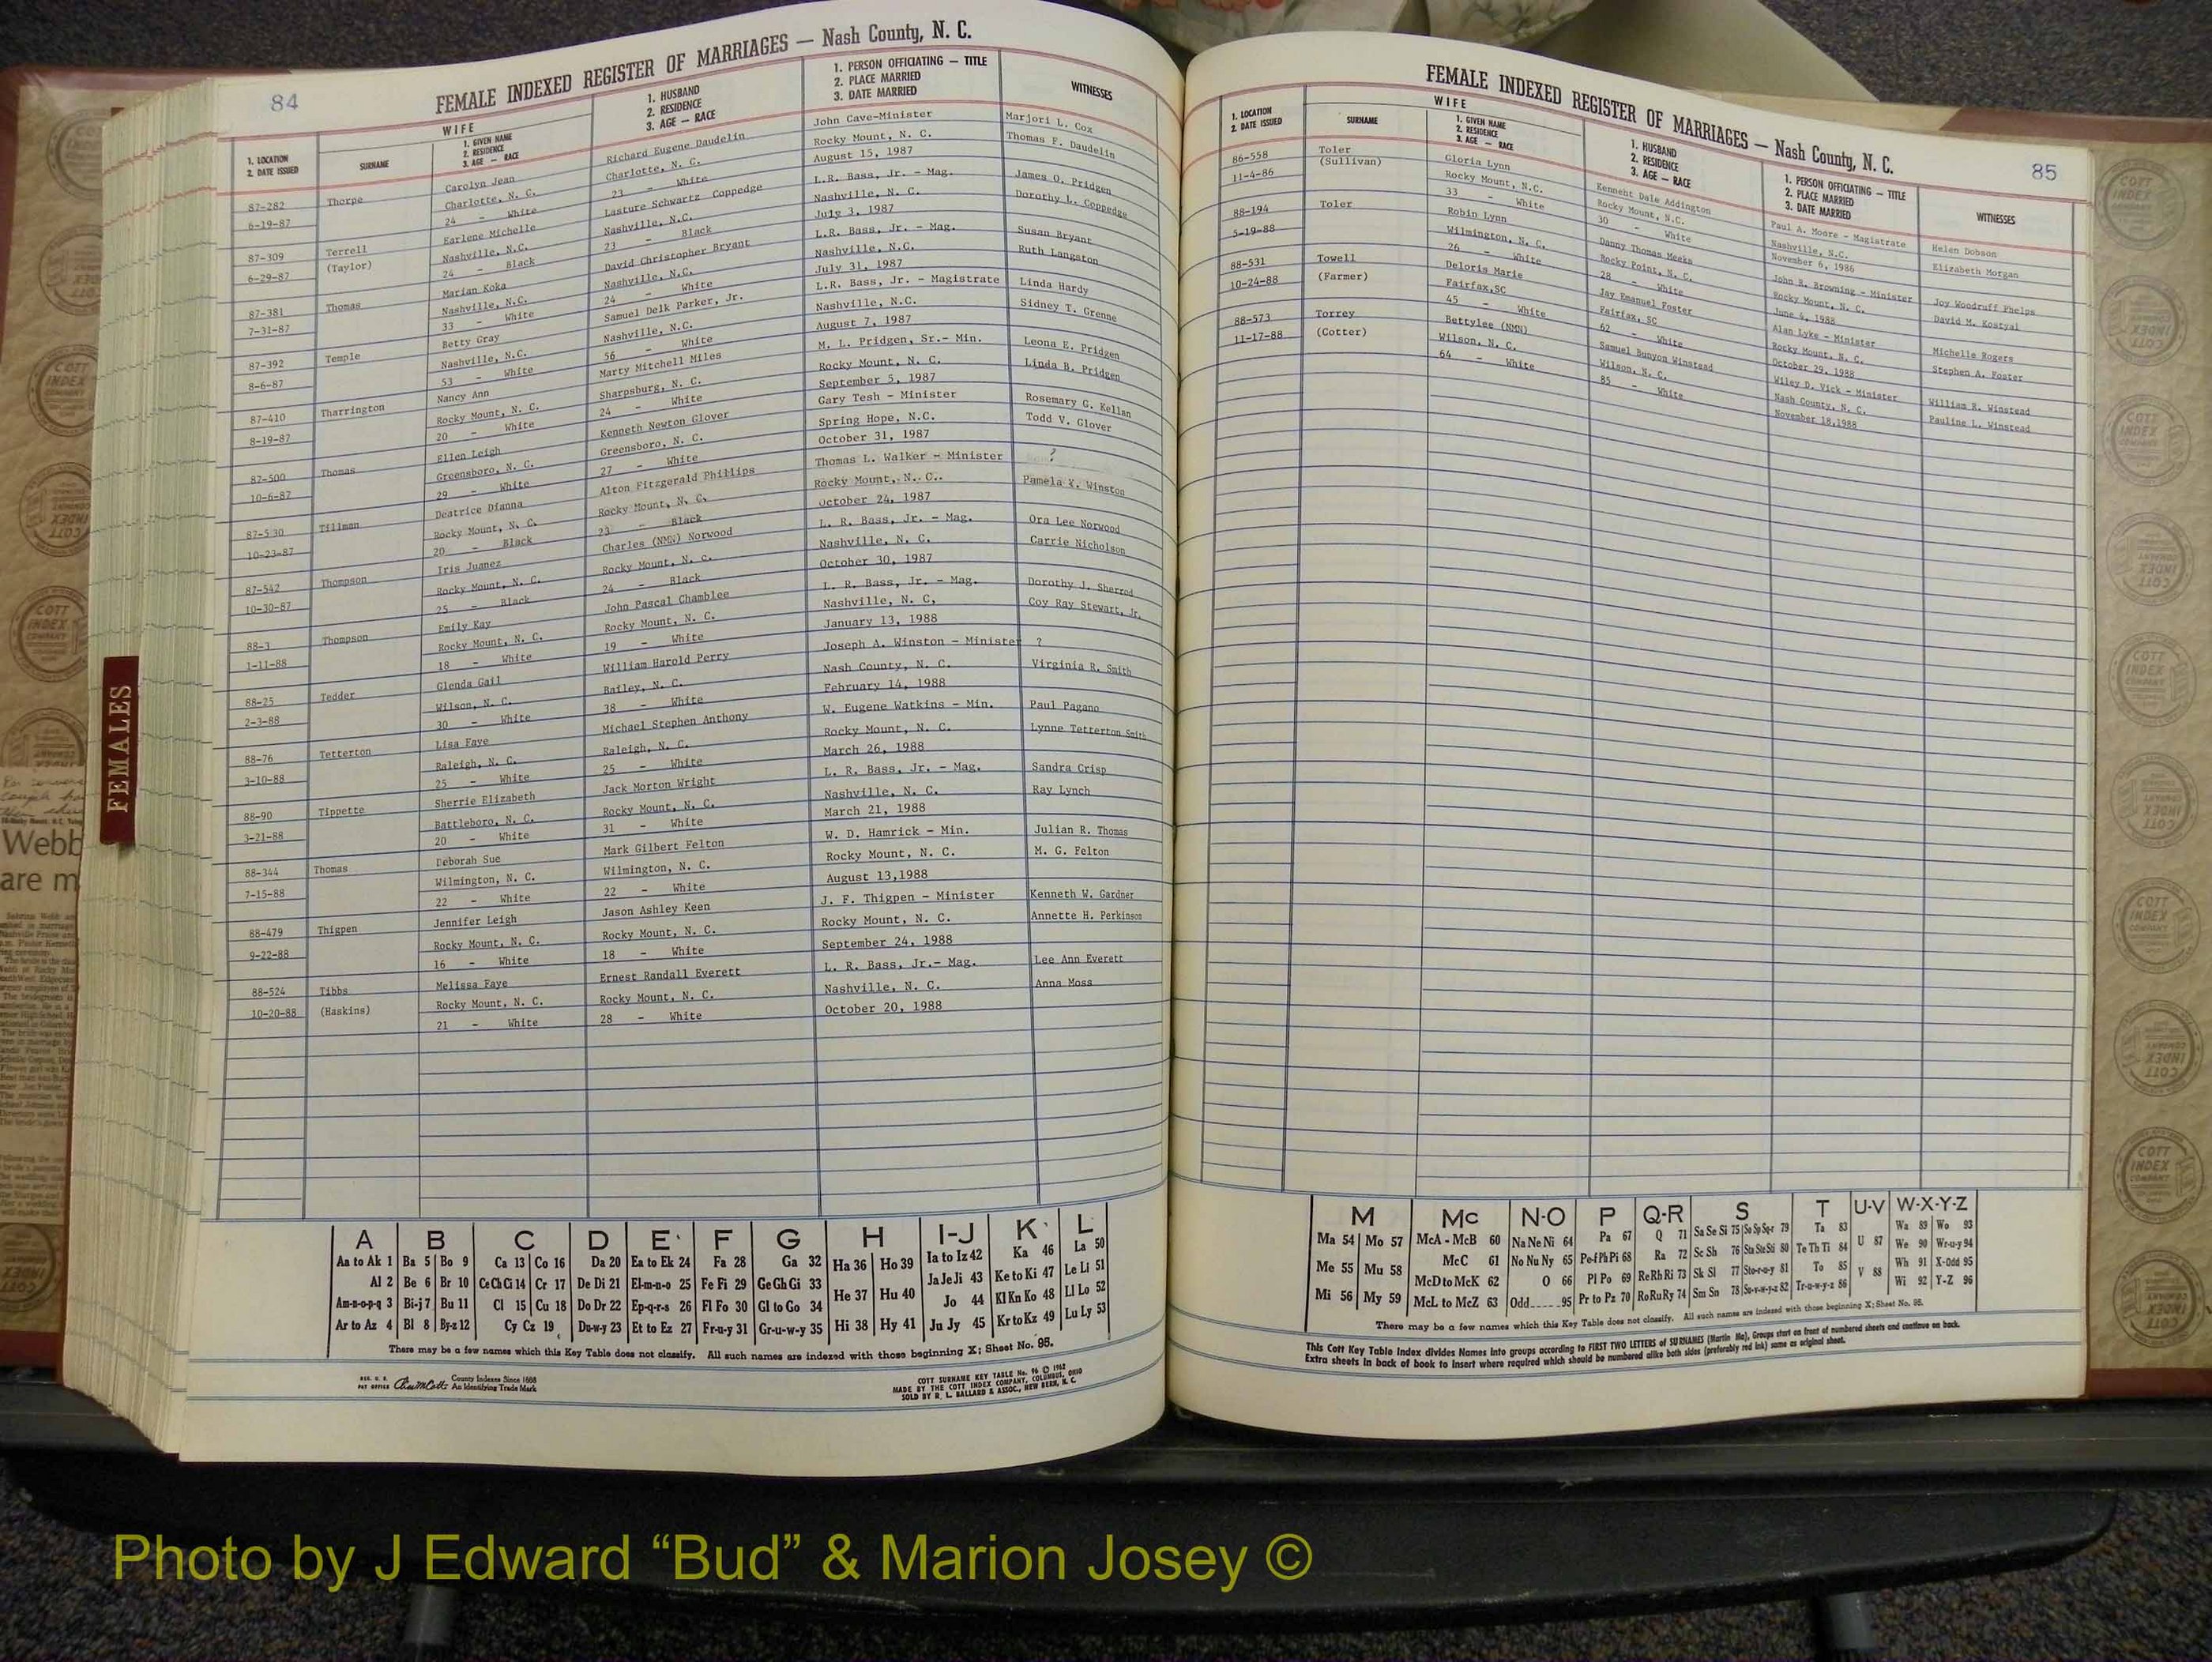 84
FEMALE INDEXED REGISTER OF MARRIAGES — Nash County, N. C.
1. LOCATION
2. DATE ISSUED
WIFE
SURNAME
1. GIVEN NAME
2. RESIDENCE
3. AGE — RACE
1. HUSBAND
2. RESIDENCE
3. AGE — RACE
1. PERSON OFFICIATING — TITLE
2. PLACE MARRIED
3. DATE MARRIED
WITNESSES
87-282 Thorpe Carolyn Jean Richard Eugene Daudelin John Cave-Minister Marjori L. Cox
6-19-87 Charlotte, N. C. Charlotte, N. C. Rocky Mount, N. C. Thomas F. Daudelin
24 - White 23 - White August 15, 1987
87-309 Terrell Earlene Michelle Lasture Schwartz Coppedge L.R. Bass, Jr. - Mag. James O. Pridgen
6-29-87 (Taylor) Nashville, N.C. Nashville, N.C. Nashville, N. C. Dorothy L. Coppedge
24 - Black 23 - Black July 3, 1987
87-381 Thomas Marian Koka David Christopher Bryant L.R. Bass, Jr. - Mag. Susan Bryant
7-31-87 Nashville, N.C. Nashville, N.C. Nashville, N.C. Ruth Langston
33 - White 24 - White July 31, 1987
87-392 Temple Betty Gray Samuel Delk Parker, Jr. L.R. Bass, Jr. - Magistrate Linda Hardy
8-6-87 Nashville, N.C. Nashville, N.C. Nashville, N.C. Sidney T. Grenne
53 - White 56 - White August 7, 1987
87-410 Tharrington Nancy Ann Marty Mitchell Miles M. L. Pridgen, Sr.- Min. Leona E. Pridgen
8-19-87 Rocky Mount, N. C. Sharpsburg, N. C. Rocky Mount, N. C. Linda B. Pridgen
20 - White 24 - White September 5, 1987
87-500 Thomas Ellen Leigh Kenneth Newton Glover Gary Tesh - Minister Rosemary G. Kellan
10-6-87 Greensboro, N. C. Greensboro, N. C. Spring Hope, N.C. Todd V. Glover
29 - White 27 - White October 31, 1987
87-530 Tillman Deatrice Dianna Alton Fitzgerald Phillips Thomas L. Walker - Minister ?
10-23-87 Rocky Mount, N. C. Rocky Mount, N. C. Rocky Mount, N. C. Pamela Y. Winston
20 - Black 23 - Black October 24, 1987
87-542 Thompson Iris Juanez Charles (NMN) Norwood L. R. Bass, Jr. - Mag. Ora Lee Norwood
10-30-87 Rocky Mount, N. C. Rocky Mount, N. C. Nashville, N. C. Carrie Nicholson
25 - Black 24 - Black October 30, 1987
88-3 Thompson Emily Kay John Pascal Chamblee L. R. Bass, Jr. - Mag. Dorothy J. Sherrod
1-11-88 Rocky Mount, N. C. Rocky Mount, N. C. Nashville, N. C, Coy Ray Stewart, Jr.
18 - White 19 - White January 13, 1988
88-25 Tedder Glenda Gail William Harold Perry Joseph A. Winston - Minister ?
2-3-88 Wilson, N. C. Bailey, N. C. Nash County, N. C. Virginia R. Smith
30 - White 38 - White February 14, 1988
88-76 Tetterton Lisa Faye Michael Stephen Anthony W. Eugene Watkins - Min. Paul Pagano
3-10-88 Raleigh, N. C. Raleigh, N. C. Rocky Mount, N. C. Lynne Tetterton Smith
25 - White 25 - White March 26, 1988
88-90 Tippette Sherrie Elizabeth Jack Morton Wright L. R. Bass, Jr. - Mag. Sandra Crisp
3-21-88 Battleboro, N. C. Rocky Mount, N. C. Nashville, N. C. Ray Lynch
20 - White 31 - White March 21, 1988
88-344 Thomas Deborah Sue Mark Gilbert Felton W. D. Hamrick - Min. Julian R. Thomas
7-15-88 Wilmington, N. C. Wilmington, N. C. Rocky Mount, N. C. M. G. Felton
22 - White 22 - White August 13,1988
88-479 Thigpen Jennifer Leigh Jason Ashley Keen J. F. Thigpen - Minister Kenneth W. Gardner
9-22-88 Rocky Mount, N. C. Rocky Mount, N. C. Rocky Mount, N. C. Annette H. Perkinson
16 - White 18 - White September 24, 1988
88-524 Tibbs Melissa Faye Ernest Randall Everett L. R. Bass, Jr.- Mag. Lee Ann Everett
10-20-88 (Haskins) Rocky Mount, N. C. Rocky Mount, N. C. Nashville, N. C. Anna Moss
21 - White 28 - White October 20, 1988
A B C D E F G H I-J K L
Aa to Ak 1 Ba 5 Bo 9 Ca 13 Co 16 Da 20 Ea to Ek 24 Fa 28 Ga 32 Ha 36 Ho 39 Ia to Iz 42 Ka 46 La 50
Al 2 Be 6 Br 10 Ce Ch Ci 14 Cr 17 De Di 21 El-m-n-o 25 Fe Fi 29 Ge Gh Gi 33 He 37 Hu 40 Ja Je Ji 43 Ke to Ki 47 Le Li 51
Am-n-o-p-q 3 Bi-j 7 Bu 11 Cl 15 Cu 18 Do Dr 22 Ep-q-r-s 26 Fl Fo 30 Gl to Go 34 Hi 38 Hy 41 Jo 44 Kl Kn Ko 48 Ll Lo 52
Ar to Az 4 Bl 8 By-z 12 Cy Cz 19 Du-w-y 23 Et to Ez 27 Fr-u-y 31 Gr-u-w-y 35 Ju Jy 45 Kr to Kz 49 Lu Ly 53
There may be a few names which this Key Table does not classify. All such names are indexed with those beginning X; Sheet No. 95.
County Indexes Since 1888
An Identifying Trade Mark
COTT SURNAME KEY TABLE No. 96 © 1962
MADE BY THE COTT INDEX COMPANY, COLUMBUS, OHIO
SOLD BY R. L. BALLARD & ASSOC., NEW BERN, N. C.
FEMALES
Webb
are m
85
FEMALE INDEXED REGISTER OF MARRIAGES — Nash County, N. C.
1. LOCATION
2. DATE ISSUED
WIFE
SURNAME
1. GIVEN NAME
2. RESIDENCE
3. AGE — RACE
1. HUSBAND
2. RESIDENCE
3. AGE — RACE
1. PERSON OFFICIATING — TITLE
2. PLACE MARRIED
3. DATE MARRIED
WITNESSES
86-558 Toler Gloria Lynn Kenneht Dale Addington Paul A. Moore - Magistrate Helen Dobson
11-4-86 (Sullivan) Rocky Mount, N.C. Rocky Mount, N.C. Nashville, N.C. Elizabeth Morgan
33 - White 30 - White November 6, 1986
88-194 Toler Robin Lynn Danny Thomas Meeks John R. Browning - Minister Joy Woodruff Phelps
5-19-88 Wilmington, N. C. Rocky Point, N. C. Rocky Mount, N. C. David M. Kostyal
26 - White 28 - White June 4, 1988
88-531 Towell Deloris Marie Jay Emanuel Foster Alan Lyke - Minister Michelle Rogers
10-24-88 (Farmer) Fairfax,SC Fairfax, SC Rocky Mount, N. C. Stephen A. Foster
45 - White 62 - White October 29, 1988
88-573 Torrey Bettylee (NMN) Samuel Bunyon Winstead Wiley D. Vick - Minister William R. Winstead
11-17-88 (Cotter) Wilson, N. C. Wilson, N. C. Nash County, N. C. Pauline L. Winstead
64 - White 85 - White November 18,1988
M Mc N-O P Q-R S T U-V W-X-Y-Z
Ma 54 Mo 57 McA - McB 60 Na Ne Ni 64 Pa 67 Q 71 Sa Se Si 75 So Sp Sq-r 79 Ta 83 U 87 Wa 89 Wo 93
Me 55 Mu 58 McC 61 No Nu Ny 65 Pe-f Ph Pi 68 Ra 72 Sc Sh 76 Sta Ste Sti 80 Te Th Ti 84 V 88 We 90 Wr-u-y 94
Mi 56 My 59 McD to McK 62 O 66 Pl Po 69 Re Rh Ri 73 Sk Sl 77 Sto-r-u-y 81 To 85 Wh 91 X-Odd 95
McL to McZ 63 Odd 95 Pr to Pz 70 Ro Ru Ry 74 Sm Sn 78 Su-v-w-y-z 82 Tr-u-w-y-z 86 Wi 92 Y-Z 96
There may be a few names which this Key Table does not classify. All such names are indexed with those beginning X; Sheet No. 95.
This Cott Key Table Index divides Names into groups according to FIRST TWO LETTERS of SURNAMES (Martin Ma), Groups start on front of numbered sheets and continue on back.
Extra sheets in back of book to insert where required which should be numbered alike both sides (preferably red ink) same as original sheet.
COTT INDEX COMPANY
Photo by J Edward “Bud” & Marion Josey ©